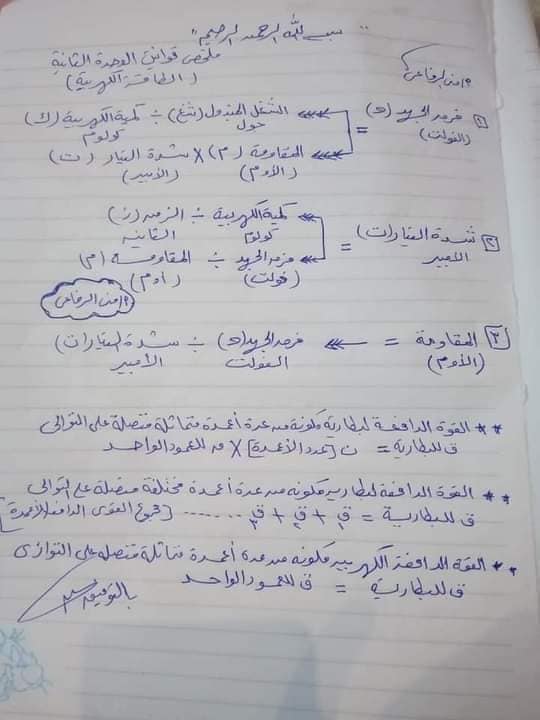 "بسم الله الرحمن الرحيم"
ملخص قوانين الوحدة الثانية
(الطاقة الكهربية)
منى الرفاعى
١ فرق الجهد (جـ) = الشغل المبذول (شغ) ÷ كمية الكهربية (ك)
(الفولت) جول كولوم
المقاومة (م) X شدة التيار (ت)
(الأوم) (الأمبير)
كمية الكهربية ÷ الزمن (ز)
٢ شدة التيار (ت) = كولوم الثانية
الامبير فرق الجهد ÷ المقاومة (م)
(فولت) (أوم)
منى الرفاعى
٣ المقاومة = فرق الجهد (جـ) ÷ شدة التيار (ت)
(الأوم) الفولت الأمبير
** القوة الدافعة لبطارية مكونة من عدة أعمدة متماثلة متصلة على التوالى
ق للبطارية = ن [عدد الأعمدة] X ق للعمود الواحد
** القوة الدافعة لبطارية مكونه من عدة أعمدة مختلفة متصلة على التوالى
ق للبطارية = ق١ + ق٢ + ق٣ ....... [مجموع القوى الدافعة للأعمدة]
** القوة الدافعة الكهربيه مكونه من عدة أعمدة متماثلة متصله على التوازى
ق للبطارية = ق للعمود الواحد
بالتوفيق